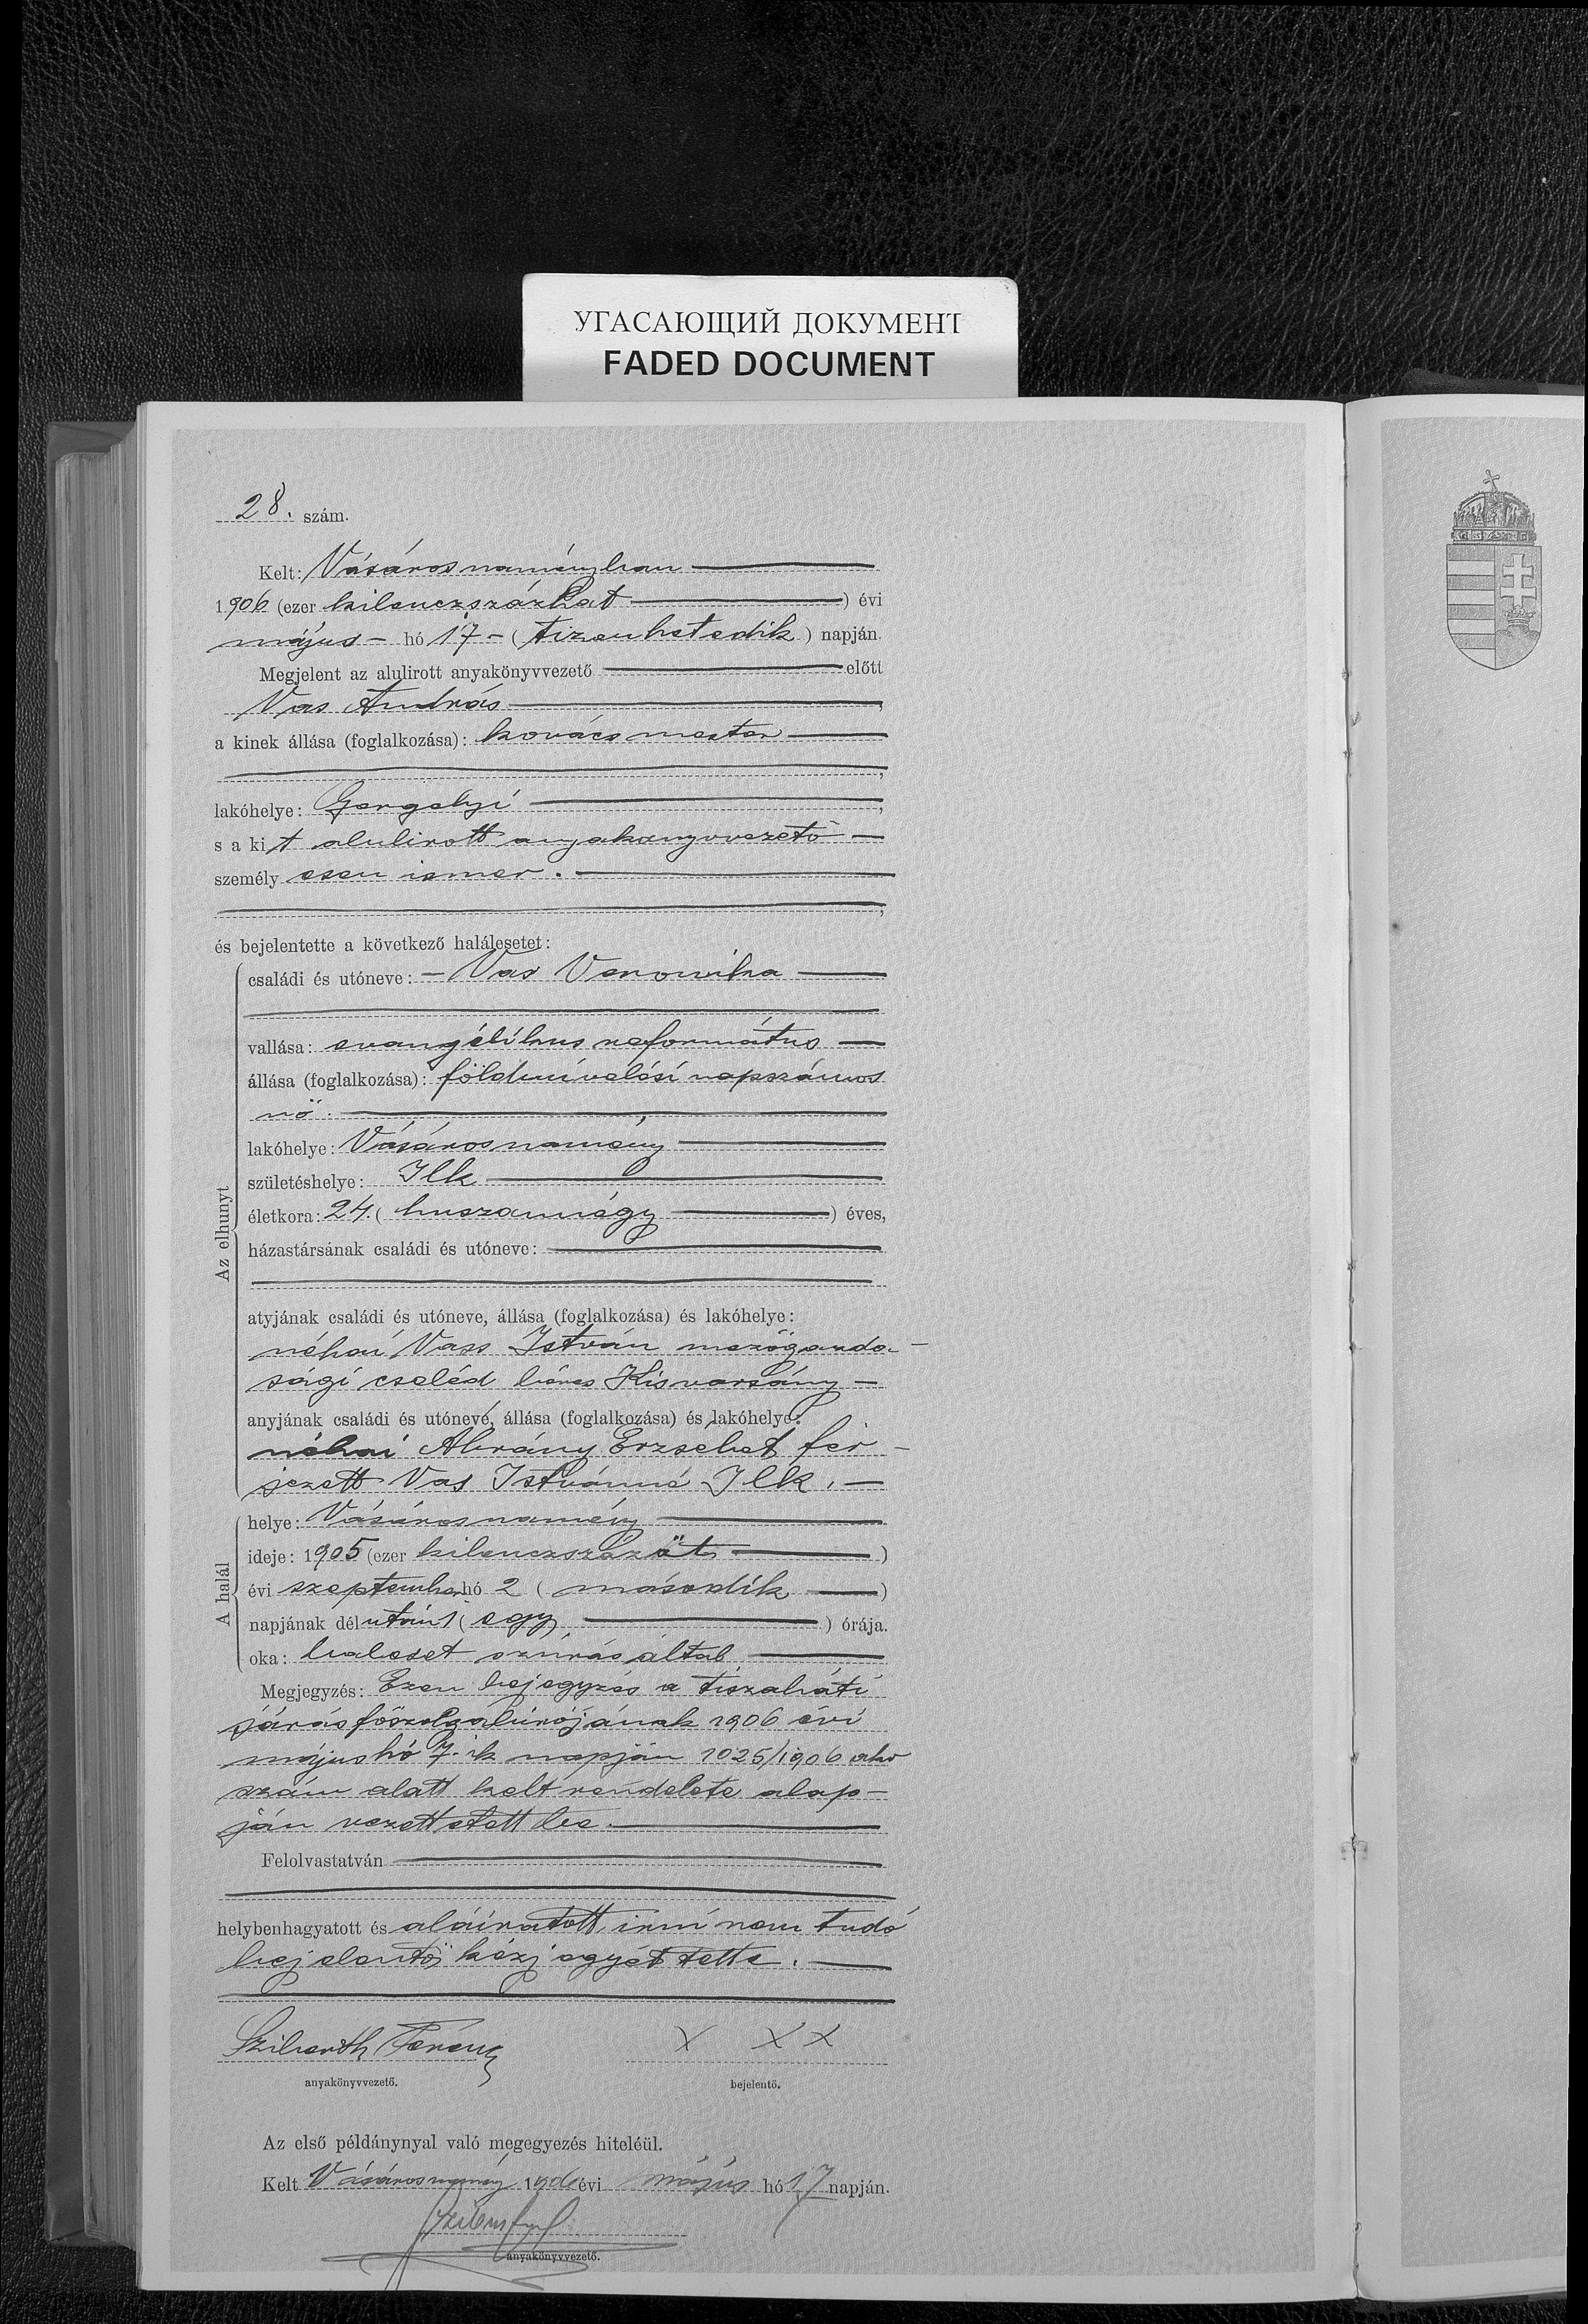 УГАСАЮЩИЙ ДОКУМЕНТ
FADED DOCUMENT
28. szám.
Kelt: Vásárosnaményban
1906 (ezer kilenczszázhat) évi
május hó 17 (tizenhetedik) napján.
Megjelent az alulirott anyakönyvvezető előtt
Vas András,
a kinek állása (foglalkozása): kovács mester
,
lakóhelye: Gergelyi,
s a kit alulirott anyakönyvvezető
személyesen ismer.
,
és bejelentette a következő halálesetet:
Az elhunyt
családi és utóneve: Vas Veronika
vallása: evangélikus református
állása (foglalkozása): földmívelési napszámos
nő.
lakóhelye: Vásárosnamény
születéshelye: Ilk
életkora: 24. (huszannégy) éves,
házastársának családi és utóneve:
atyjának családi és utóneve, állása (foglalkozása) és lakóhelye:
néhai Vass István mezőgazda-
sági cseléd béres Kisvarsány
anyjának családi és utóneve, állása (foglalkozása) és lakóhelye:
néhai Ábrány Erzsébet fér-
jezett Vas Istvánné Ilk.
A halál
helye: Vásárosnamény
ideje: 1905 (ezer kilenczszázöt)
évi szeptember hó 2 (második)
napjának délután 1 (egy) órája.
oka: baleset szúrás által
Megjegyzés: Ezen bejegyzés a tiszaháti
járás főszolgabírójának 1906 évi
május hó 7.ik napján 1025/1906 akv
szám alatt kelt rendelete alap-
ján vezettetett be.
Felolvastatván
helybenhagyatott és aláiratott, irni nem tudó
bejelentő kézjegyét tette.
Ferencz
X X X
anyakönyvvezető.
bejelentő.
Az első példánynyal való megegyezés hiteléül.
Kelt Vásárosnamény 1906 évi május hó 17 napján.
anyakönyvvezető.